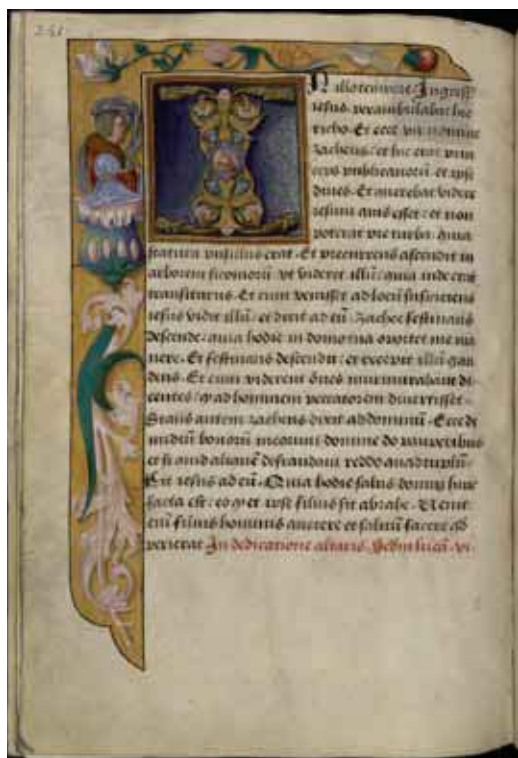 IN illo tempore: Ingress⁹
iesus perambulabat hie
richo. Et ecce vir nomine
zacheus: et hic erat prin
ceps publicanorũ et ipse
diues. Et querebat videre
iesum quis esset: et non
poterat pre turba: quia
statura pusillus erat. Et precurrens ascendit in
arborem sicomorũ vt videret illũ: quia inde erat
transiturus. Et cum venisset ad locũ suspiciens
iesus vidit illũ: et dixit ad eũ. Zachee festinans
descende: quia hodie in domo tua oportet me ma
nere. Et festinans descendit: et excepit illũ gau
dens. Et cum viderent õnes murmurabant di
centes: ꝙ ad hominem peccatorem diuertisset.
Stans autem zacheus dixit ad dominũ. Ecce di
midiũ bonorũ meorum domine do pauperibus
et si quid aliquẽ defraudaui reddo quadruplũ.
Ait iesus ad eũ. Quia hodie salus domui huic
facta est: eo ꝙ et ipse filius sit abrahe. Uenit
enĩ filius hominis querere et saluũ facere qd̃
perierat In dedicatione altaris. Scdm̃ lucã. vi.